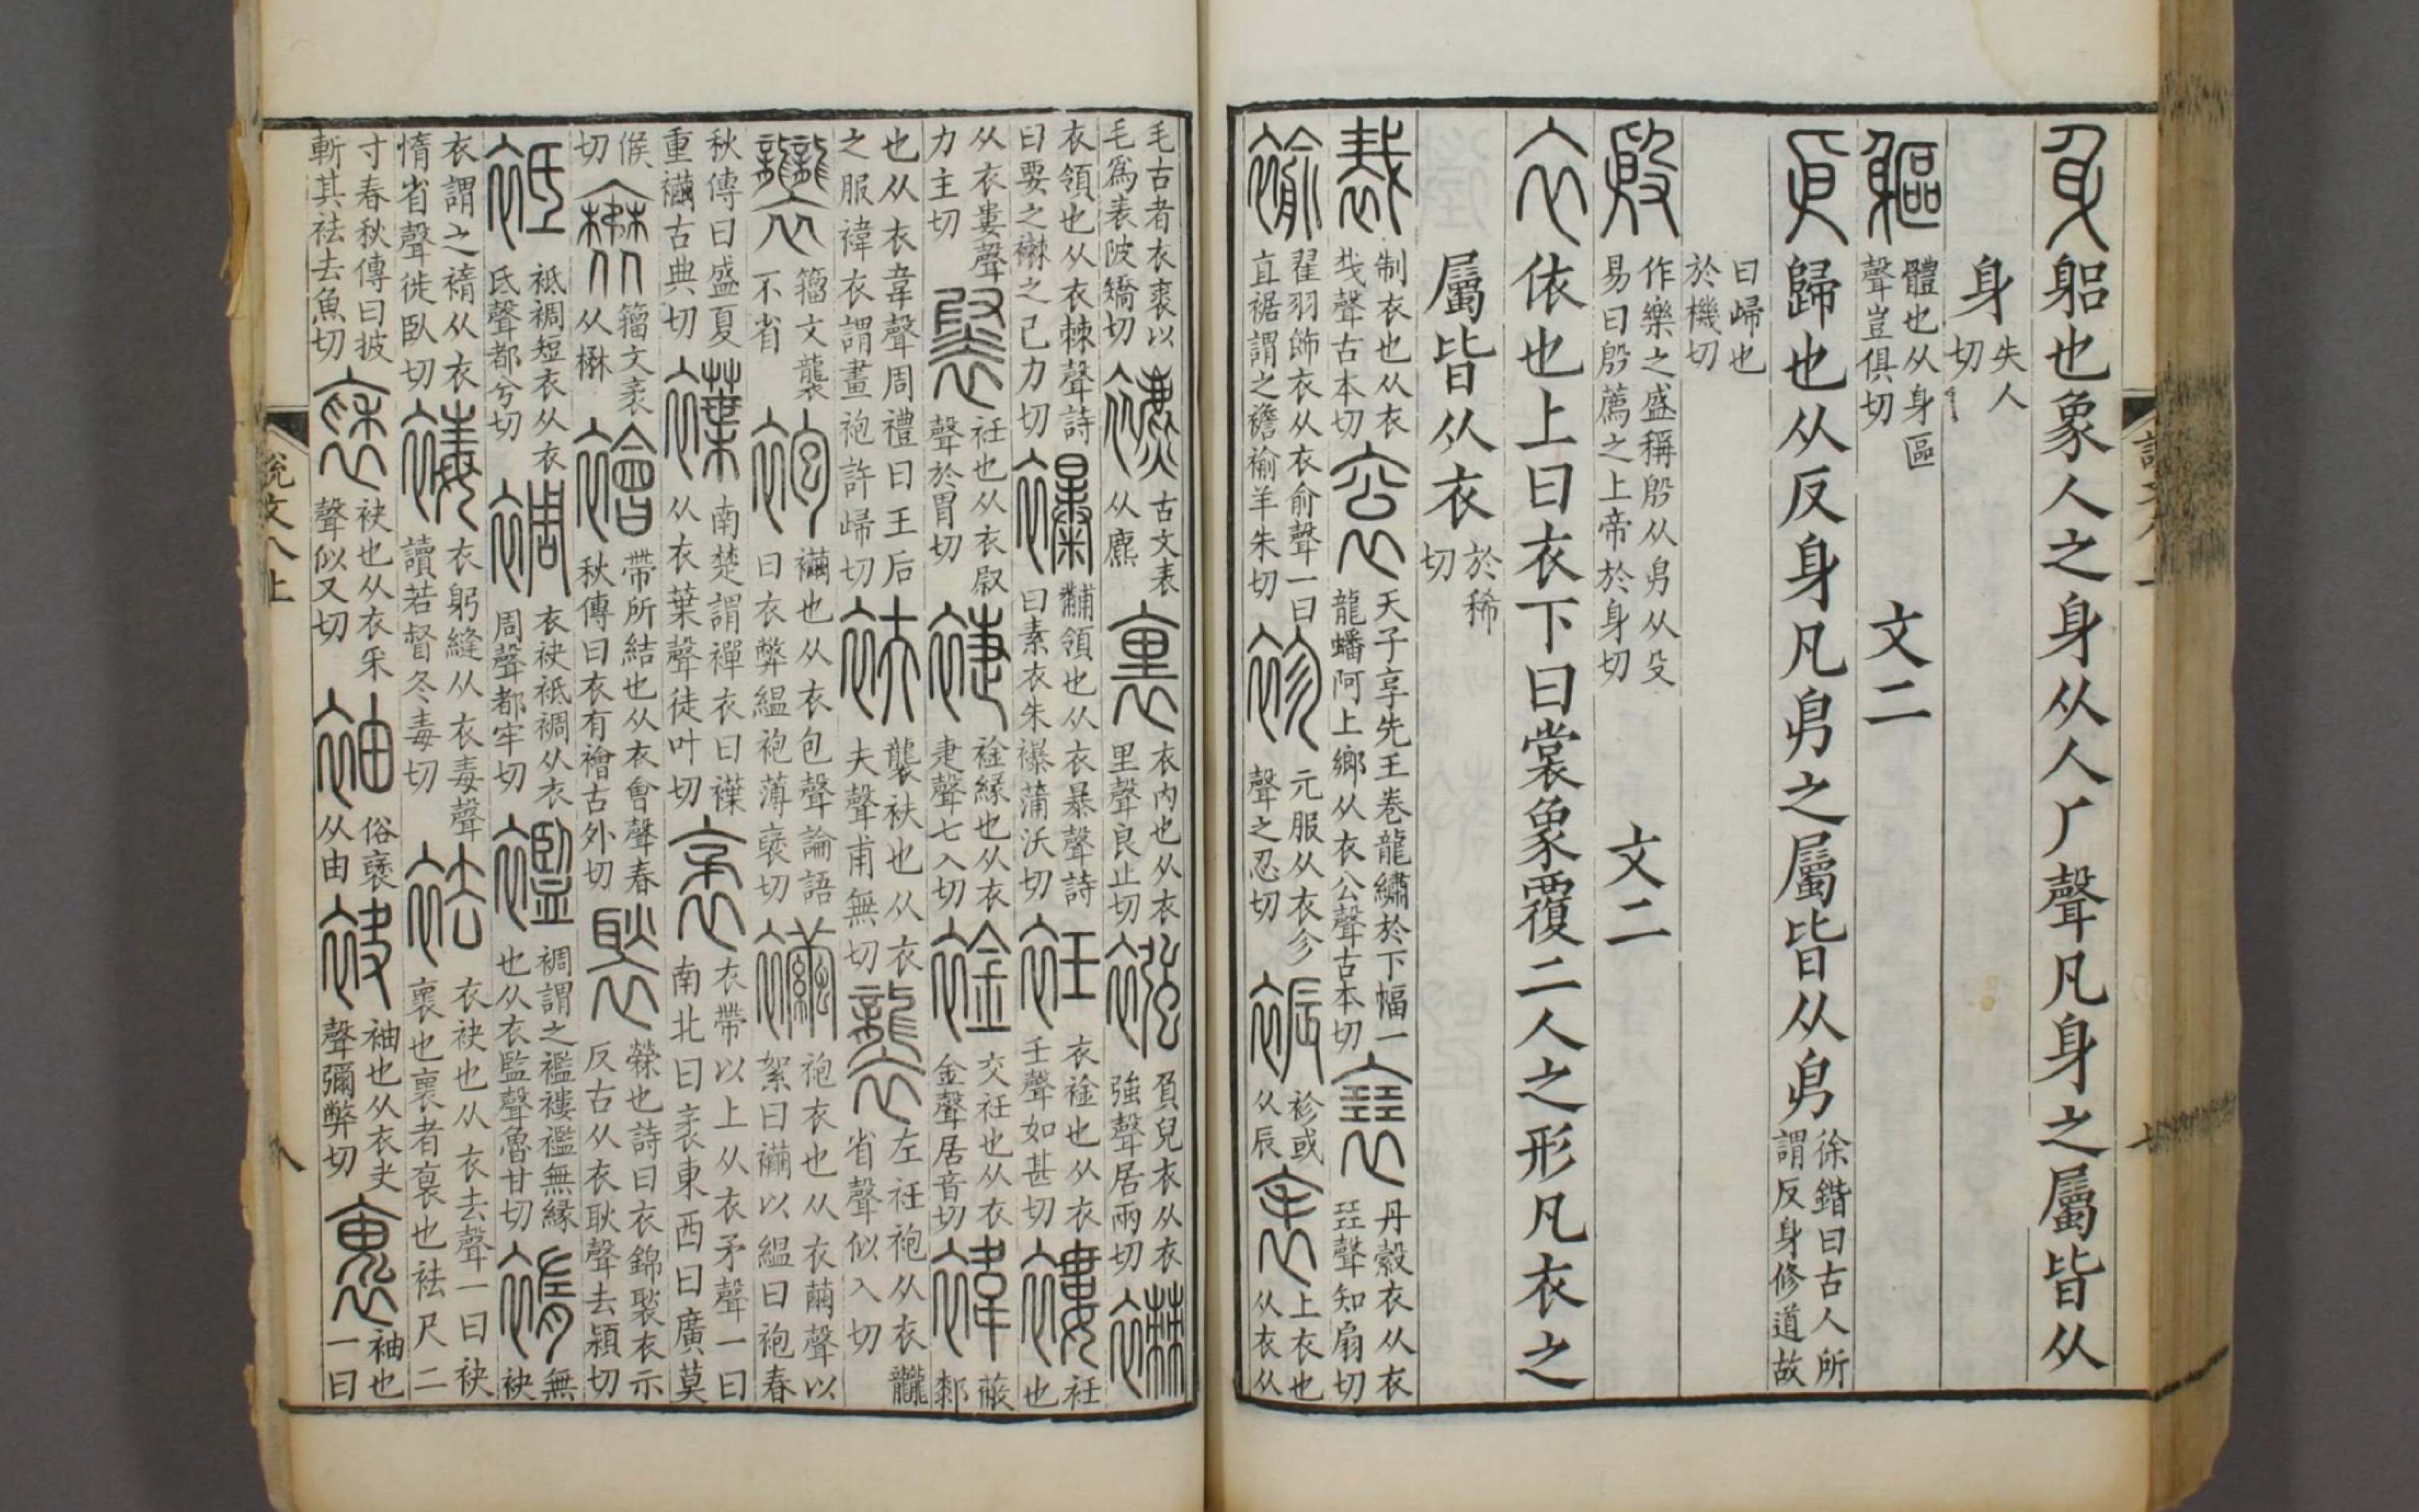 身躳也象人之身从人厂聲凡身之屬皆从
身失人切
軀體也从身區聲豈俱切 文二
㐆歸也从反身凡㐆之屬皆从㐆徐鍇曰古人所謂反身修道故
曰歸也於機切
殷作樂之盛稱殷从㐆从殳易曰殷薦之上帝於身切 文二
衣依也上曰衣下曰裳象覆二人之形凡衣之
屬皆从衣於稀切
裁制衣也从衣𢦏聲古本切袞天子享先王卷龍繡於下幅一龍蟠阿上鄉从衣公聲古本切𧝑丹縠衣从衣㠭聲知扇切
褕翟羽飾衣从衣俞聲一曰直裾謂之襜褕羊朱切袗元服从衣㐱聲之忍切裖袗或从辰表上衣也从衣从
毛古者衣裘以毛爲表陂矯切𧞤古文表从麃裏衣內也从衣里聲良止切襁負兒衣从衣強聲居兩切襋
衣領也从衣棘聲詩曰要之襋之己力切襮黼領也从衣暴聲詩曰素衣朱襮蒲沃切衽衣䘳也从衣壬聲如甚切褸衽也
从衣婁聲力主切褽衽也从衣𡰥聲於胃切緁䘳緣也从衣疌聲七入切䘳交衽也从衣金聲居音切褘蔽䣛
也从衣韋聲周禮曰王后之服褘衣謂畫袍許歸切衭襲衭也从衣夫聲甫無切襲左衽袍从衣龖省聲似入切
籒文襲不省袍襺也从衣包聲論語曰衣弊緼袍薄褒切襺袍衣也从衣繭聲以絮曰襺以緼曰袍春
秋傳曰盛夏重襺古典切褋南楚謂襌衣曰褋从衣葉聲徒叶切袤衣帶以上从衣矛聲一曰南北曰袤東西曰廣莫
候切𧝼籒文袤从楙襘帶所結也从衣會聲春秋傳曰衣有襘古外切褧檾也詩曰衣錦褧衣示反古从衣耿聲去潁切
袛袛裯短衣从衣氐聲都兮切裯衣袂袛裯从衣周聲都牢切襤裯謂之襤褸襤無緣也从衣監聲魯甘切褍無袂
衣謂之𧝎从衣惰省聲徒臥切𧝴衣躬縫从衣毒聲讀若督冬毒切袪衣袂也从衣去聲一曰袪褱也褱者袌也袪尺二
寸春秋傳曰披斬其袪去魚切褎袂也从衣𥝩聲似又切袖俗褎从由袂袖也从衣夬聲彌弊切褢袖也一曰
說文八上 八